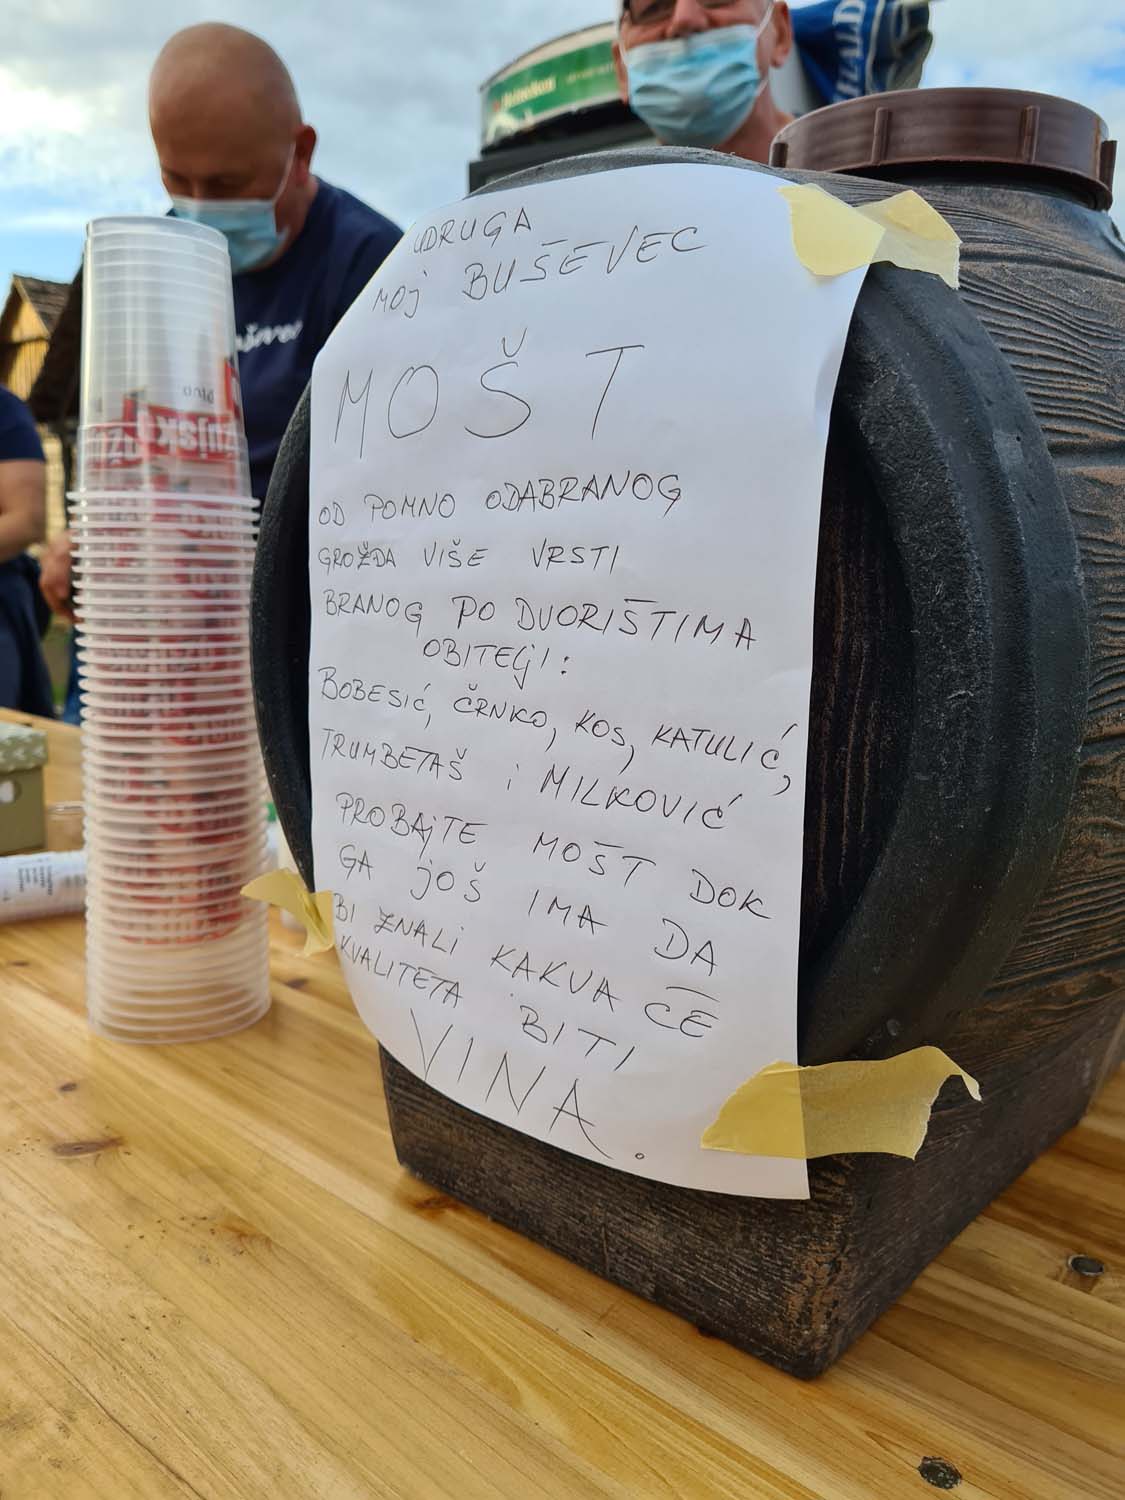 UDRUGA
MOJ BUŠEVEC
MOŠT
OD POMNO ODABRANOG
GROŽDA VIŠE VRSTI
BRANOG PO DVORIŠTIMA
OBITELJI:
BOBESIĆ, ČRNKO, KOS, KATULIĆ,
TRUMBETAŠ i MILKOVIĆ
PROBAJTE MOŠT DOK
GA JOŠ IMA DA
BI ZNALI KAKVA ĆE
KVALITETA BITI
VINA.
Heineken